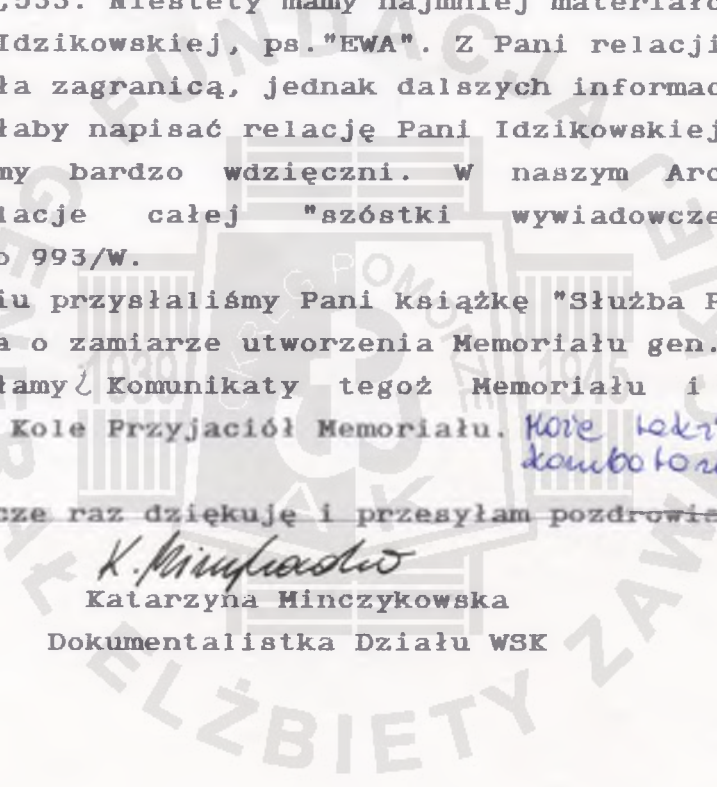 ,533. Niestety mamy najmniej materiałó
Idzikowskiej, ps."EWA". Z Pani relacji
ła zagranicą, jednak dalszych informac
łaby napisać relację Pani Idzikowskiej
my bardzo wdzięczni. W naszym Arc
lacje całej "szóstki wywiadowcze
o 993/W.
iu przysłaliśmy Pani książkę "Służba P
a o zamiarze utworzenia Memoriału gen.
łamy i Komunikaty tegoż Memoriału i
Kole Przyjaciół Memoriału. Może
cze raz dziękuję i przesyłam pozdrowie
K. Minczykowska
Katarzyna Minczykowska
Dokumentalistka Działu WSK
FUNDACJA
GENERAŁ ELŻBIETY ZAWACKIEJ
OKRĘG POMORZE
1939 1945
AK